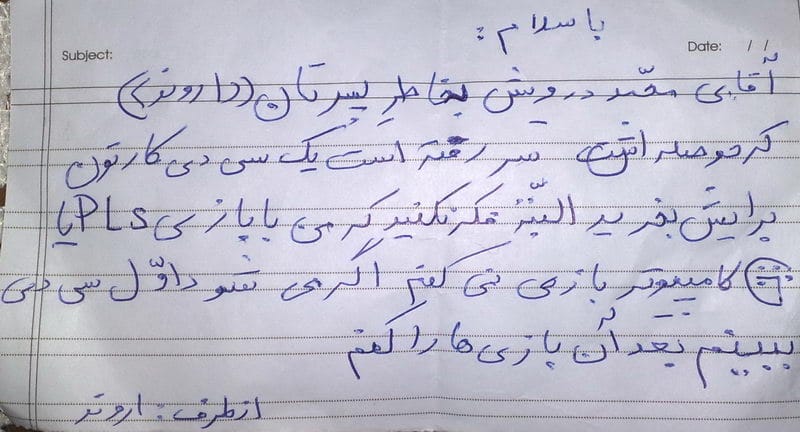 با سلام :
Subject:
Date: / /
آقایی محمد درویش بخاطر پسرتان (داروند)
که حوصله اش سر رفته است یک سی دی کارتون
برایش بخرید البتّه فکر نکنید که می با بازی PLS یا
کامپیوتر بازی نمی کنم اگر می شود اوّل سی دی
ببینم بعد آن بازی ها را کنم
از طرف : اروند